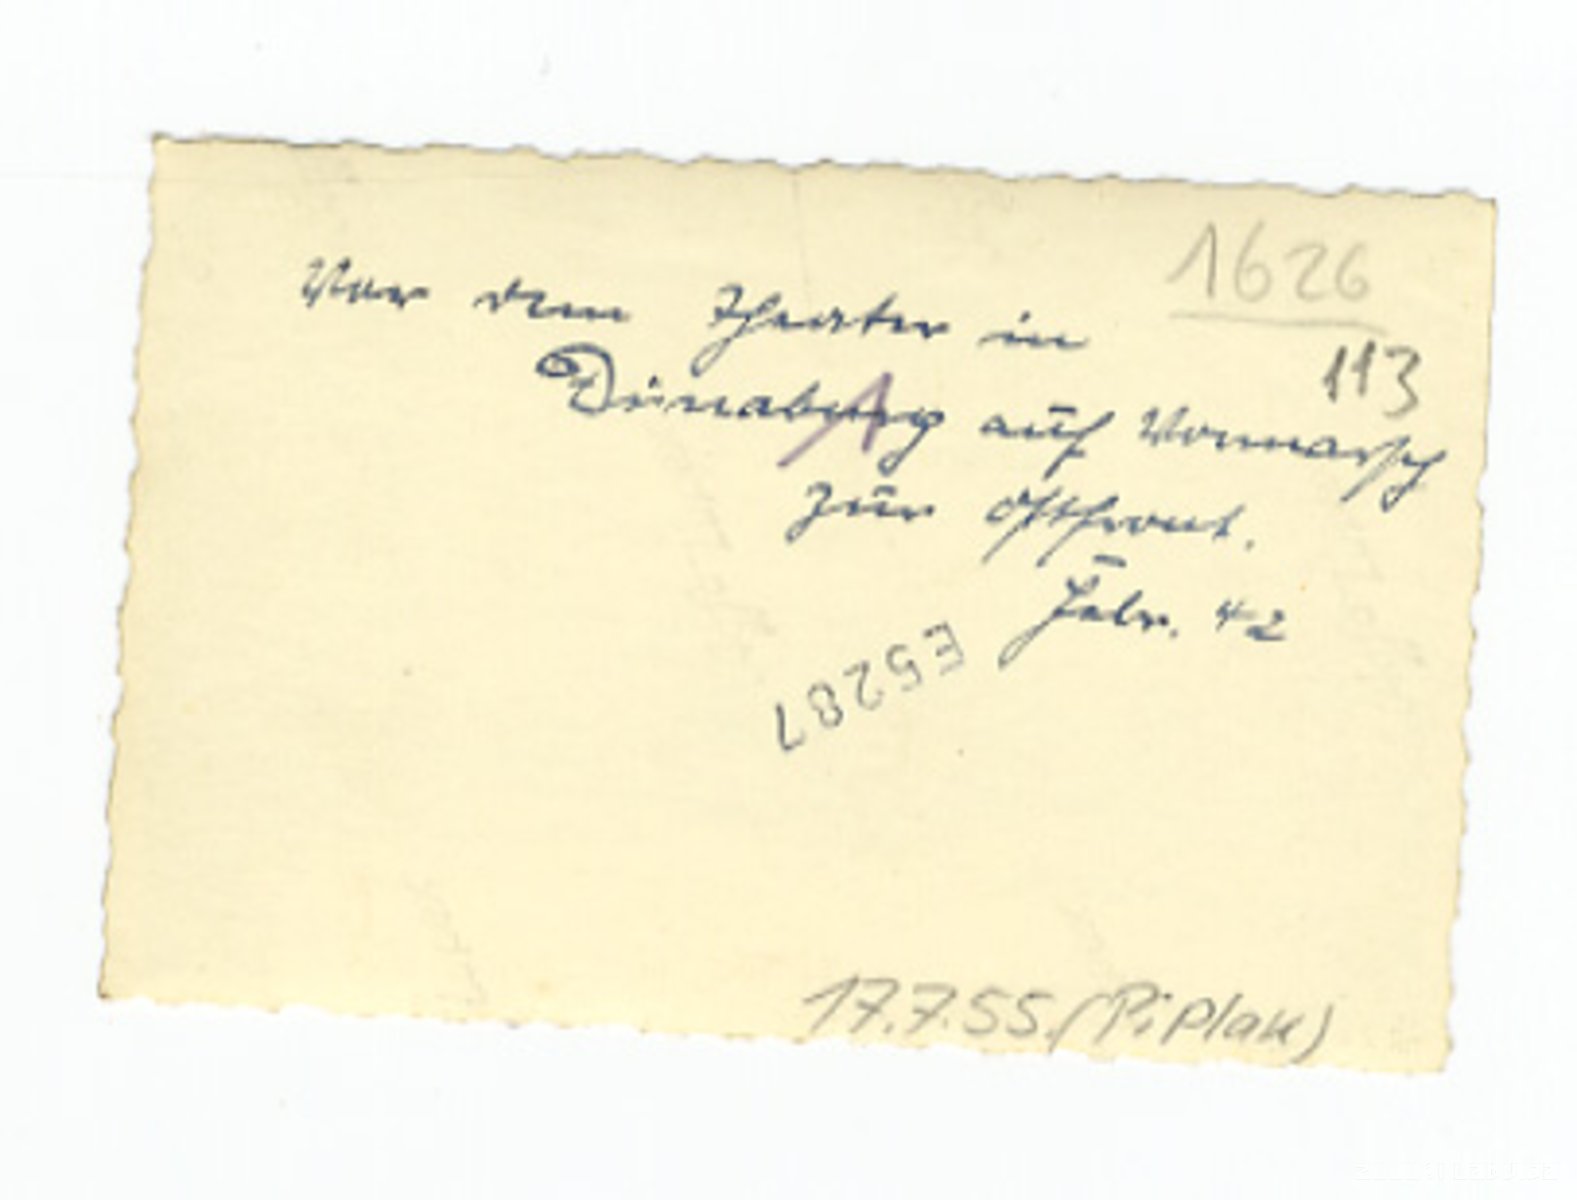 1626
Vor dem Theater in
113
Dünaburg auf Vormarsch
zur Ostfront.
Febr. 42
E5287
17.7.55. (Piplak)